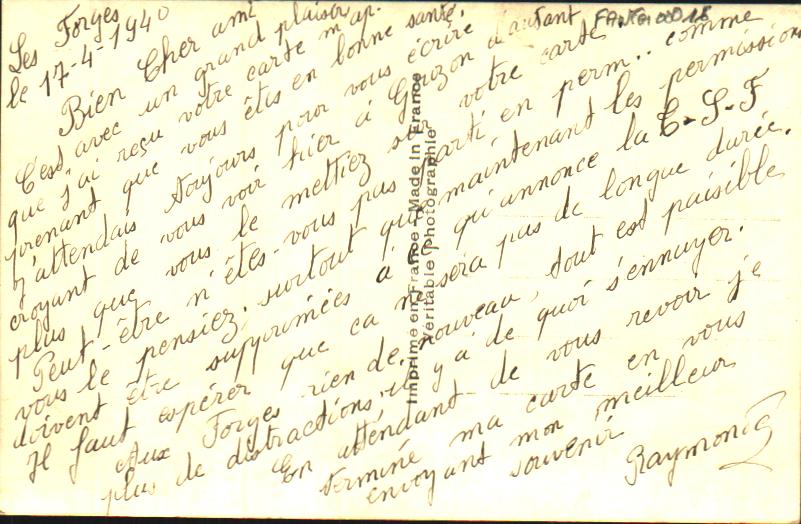 Les Forges
le 17-4-1940
Bien Cher ami
C'est avec un grand plaisir
que j'ai reçu votre carte m'ap-
prenant que vous êtes en bonne santé.
J'attendais toujours pour vous écrire
croyant de vous voir hier à d'autant
plus que vous le mettiez sur votre carte.
Peut-être n'êtes-vous pas parti en perm.. comme
vous le pensiez, surtout que maintenant les permissions
doivent être supprimées à ce qu'annonce la T-S-F
Il faut espérer que ça ne sera pas de longue durée.
Aux Forges rien de nouveau, tout est paisible
plus de distractions, il y a de quoi s'ennuyer.
En attendant de vous revoir je
termine ma carte en vous
envoyant mon meilleur
souvenir
Raymonde
Imprimé en France - Made in France
Véritable Photographie